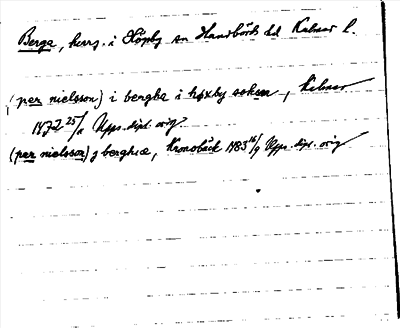 Berga, herrg. i Högby sn Handbörds hd Kalmar l.
(per nielsson) i bergha i høxby sokn, Kalmar
1472 25/ Upps. dipl. orig.
(per nielsson) j berghæ, Kronobäck 1483 16/9 Upps. dipl. orig